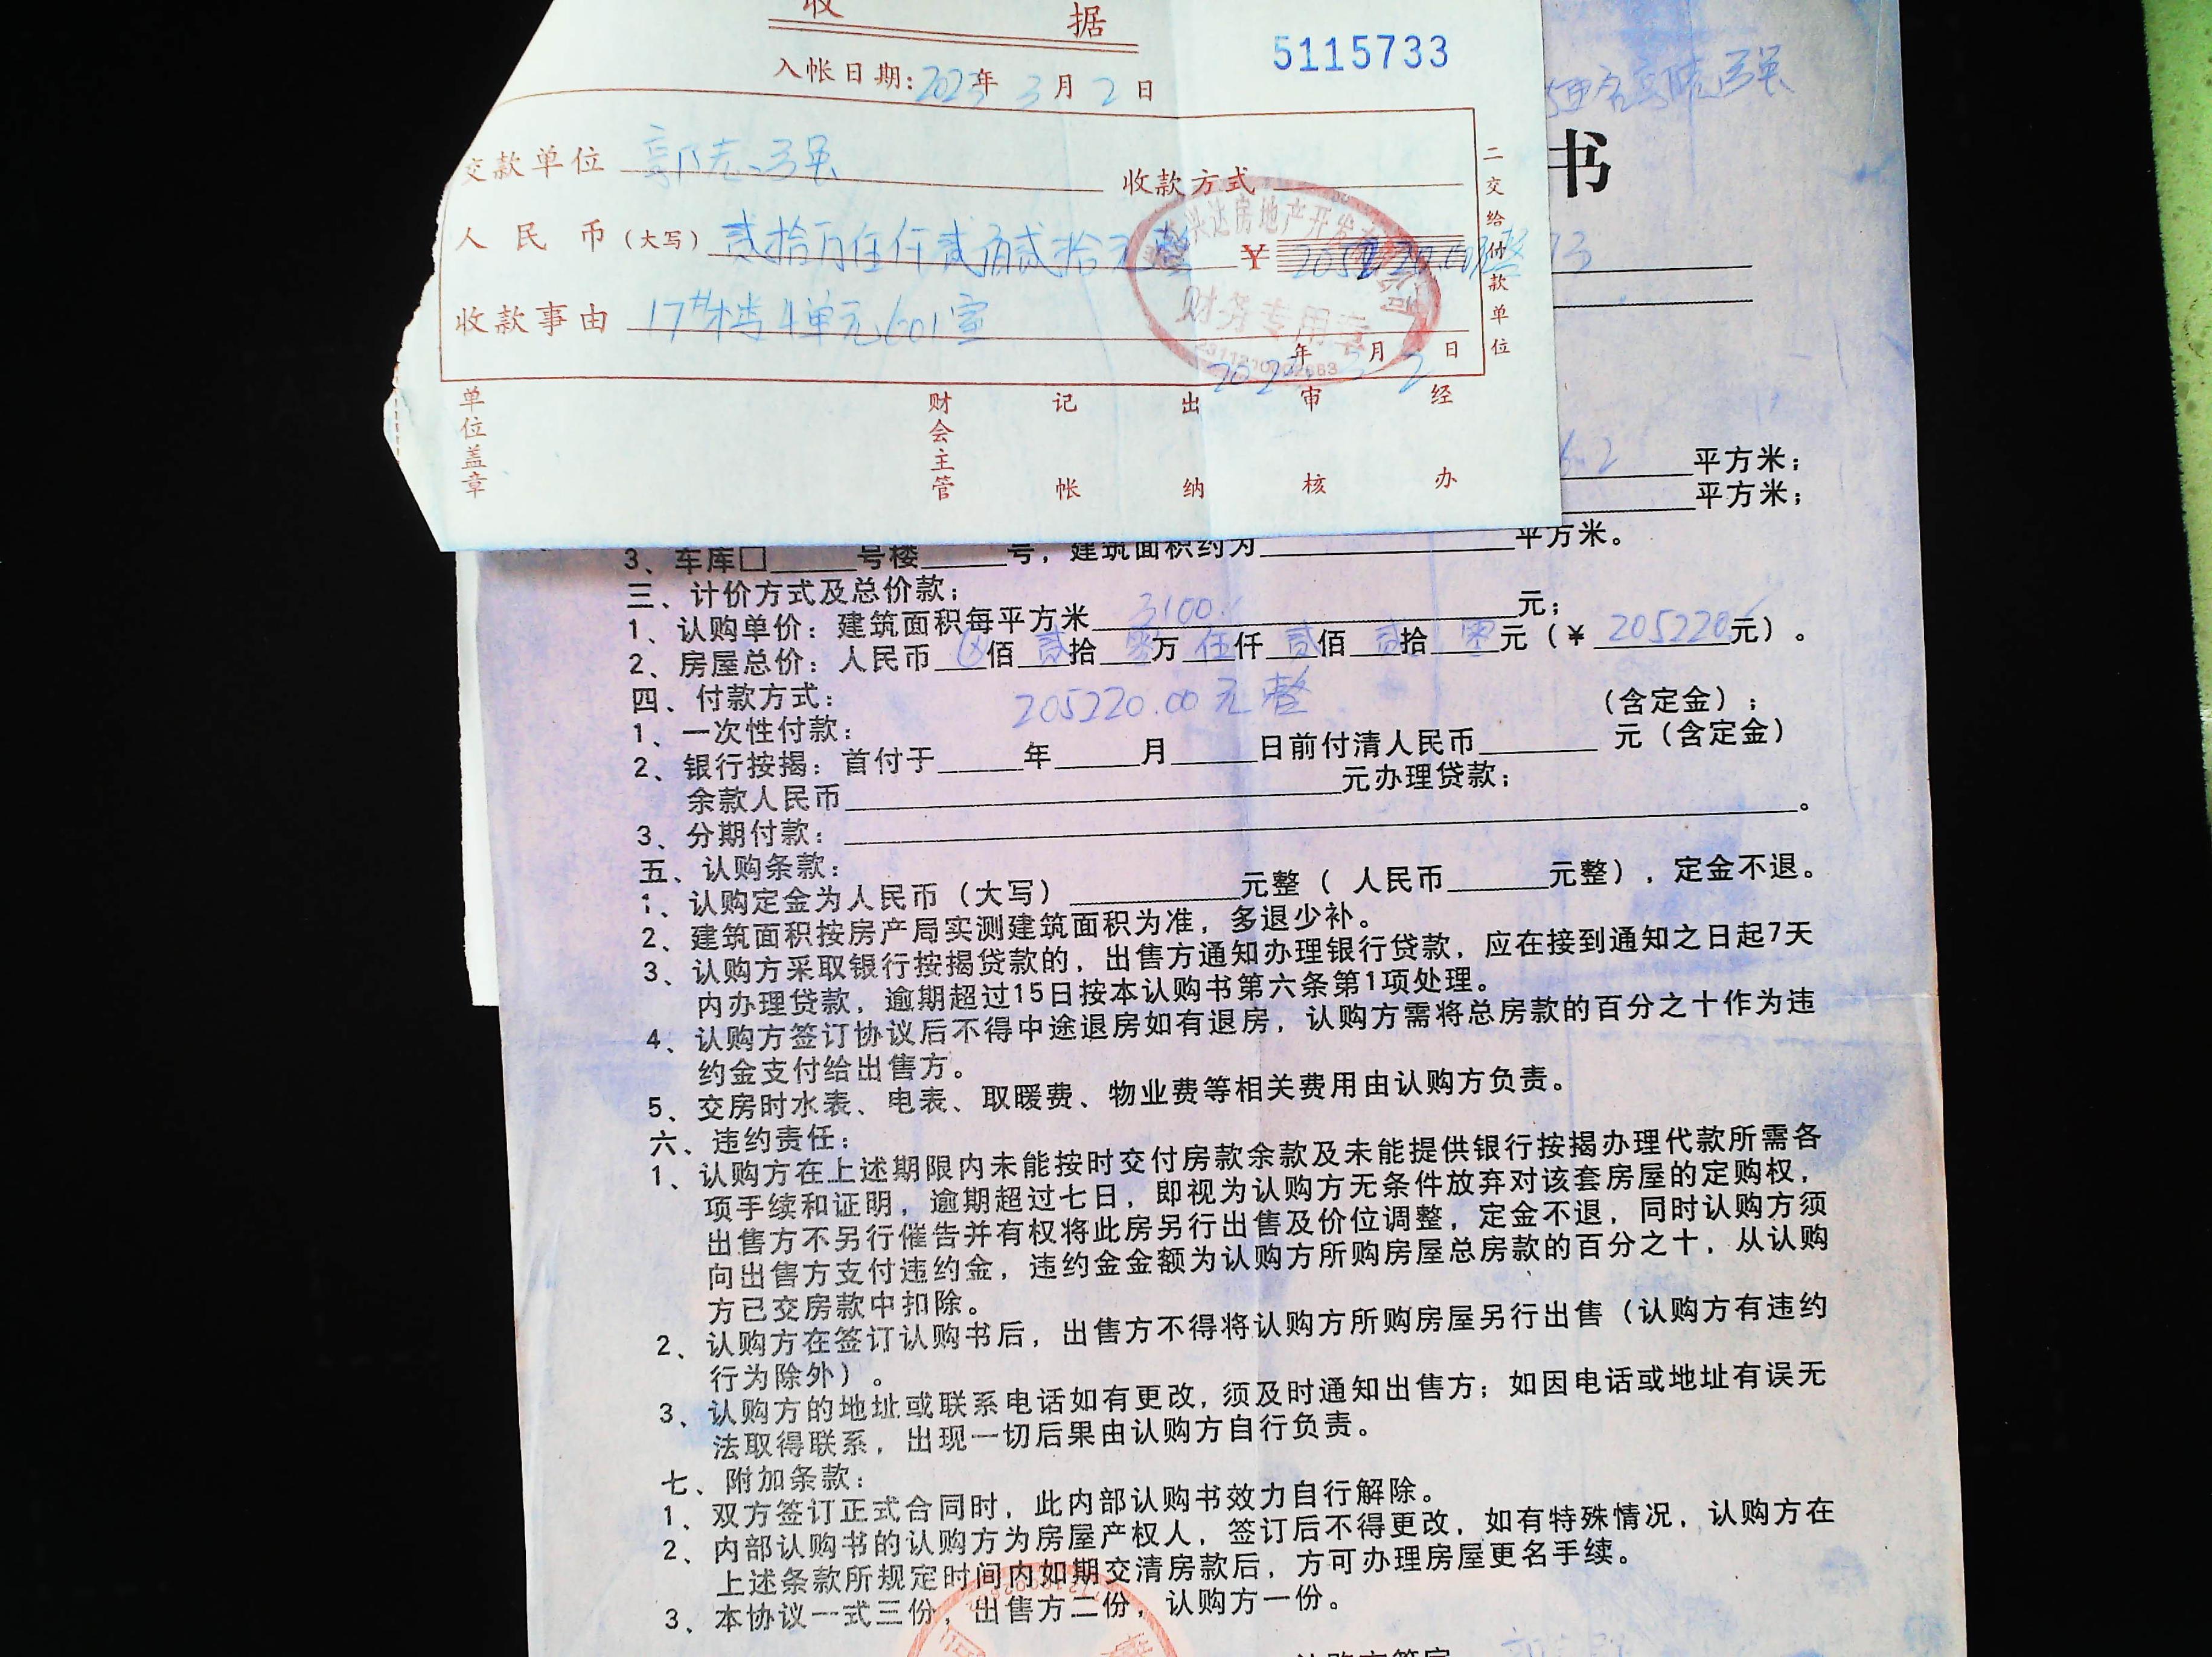 收 据
5115733
入帐日期：2023年 3月 2日
书
交款单位 收款方式
人民币（大写）贰拾万伍仟贰佰贰拾元整 ￥205220.00元整
收款事由 17#楼4单元601室
兴达房地产开发
财务专用章
年 月 2日
二交给付款单位
单位盖章 财会主管 记帐 出纳 审核 经办
6.2 平方米；
平方米；
3、车库□ 号楼 号，建筑面积约为 平方米。
三、计价方式及总价款：
1、认购单价：建筑面积每平方米 3100. 元；
2、房屋总价：人民币 佰 贰拾 零万 伍仟 贰佰 贰拾 零元（￥205220元）。
四、付款方式：
1、一次性付款： 205220.00元整 （含定金）；
2、银行按揭：首付于 年 月 日前付清人民币 元（含定金）
余款人民币 元办理贷款；
3、分期付款： 。
五、认购条款：
1、认购定金为人民币（大写） 元整（ 人民币 元整），定金不退。
2、建筑面积按房产局实测建筑面积为准，多退少补。
3、认购方采取银行按揭贷款的，出售方通知办理银行贷款，应在接到通知之日起7天
内办理贷款，逾期超过15日按本认购书第六条第1项处理。
4、认购方签订协议后不得中途退房如有退房，认购方需将总房款的百分之十作为违
约金支付给出售方。
5、交房时水表、电表、取暖费、物业费等相关费用由认购方负责。
六、违约责任：
1、认购方在上述期限内未能按时交付房款余款及未能提供银行按揭办理代款所需各
项手续和证明，逾期超过七日，即视为认购方无条件放弃对该套房屋的定购权，
出售方不另行催告并有权将此房另行出售及价位调整，定金不退，同时认购方须
向出售方支付违约金，违约金金额为认购方所购房屋总房款的百分之十，从认购
方已交房款中扣除。
2、认购方在签订认购书后，出售方不得将认购方所购房屋另行出售（认购方有违约
行为除外）。
3、认购方的地址或联系电话如有更改，须及时通知出售方；如因电话或地址有误无
法取得联系，出现一切后果由认购方自行负责。
七、附加条款：
1、双方签订正式合同时，此内部认购书效力自行解除。
2、内部认购书的认购方为房屋产权人，签订后不得更改，如有特殊情况，认购方在
上述条款所规定时间内如期交清房款后，方可办理房屋更名手续。
3、本协议一式三份，出售方二份，认购方一份。
认购方签字